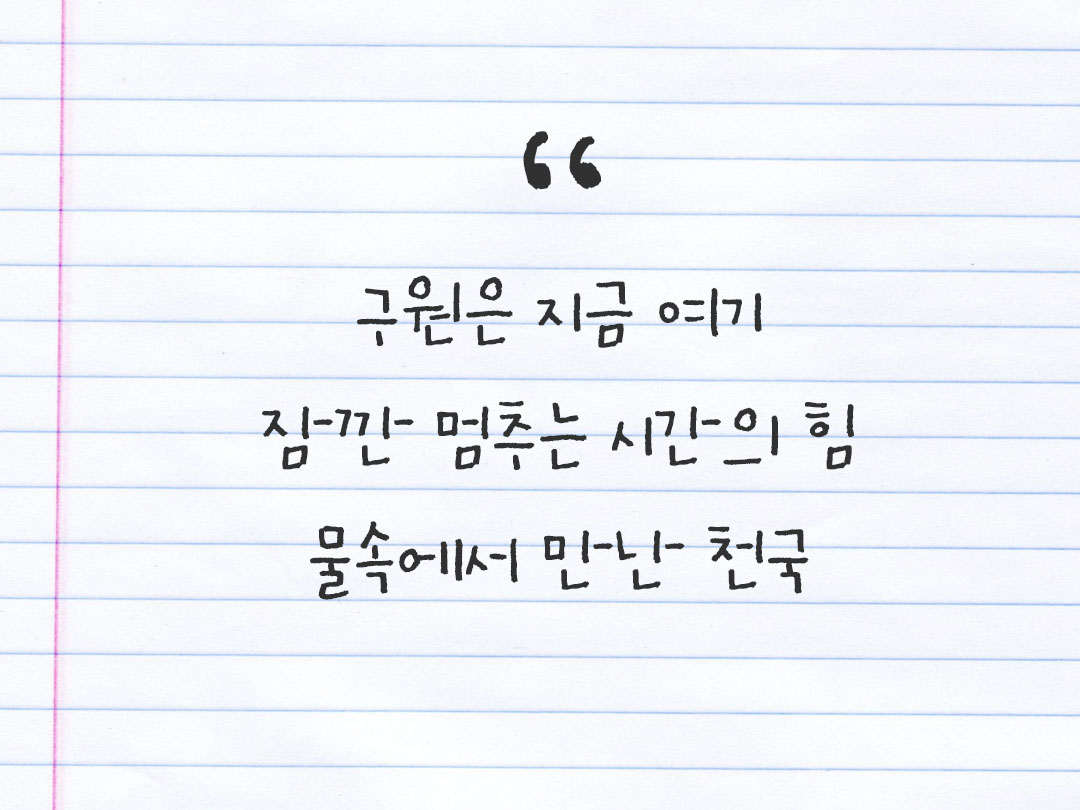 “
구원은 지금 여기
잠깐 멈추는 시간의 힘
물속에서 만난 천국